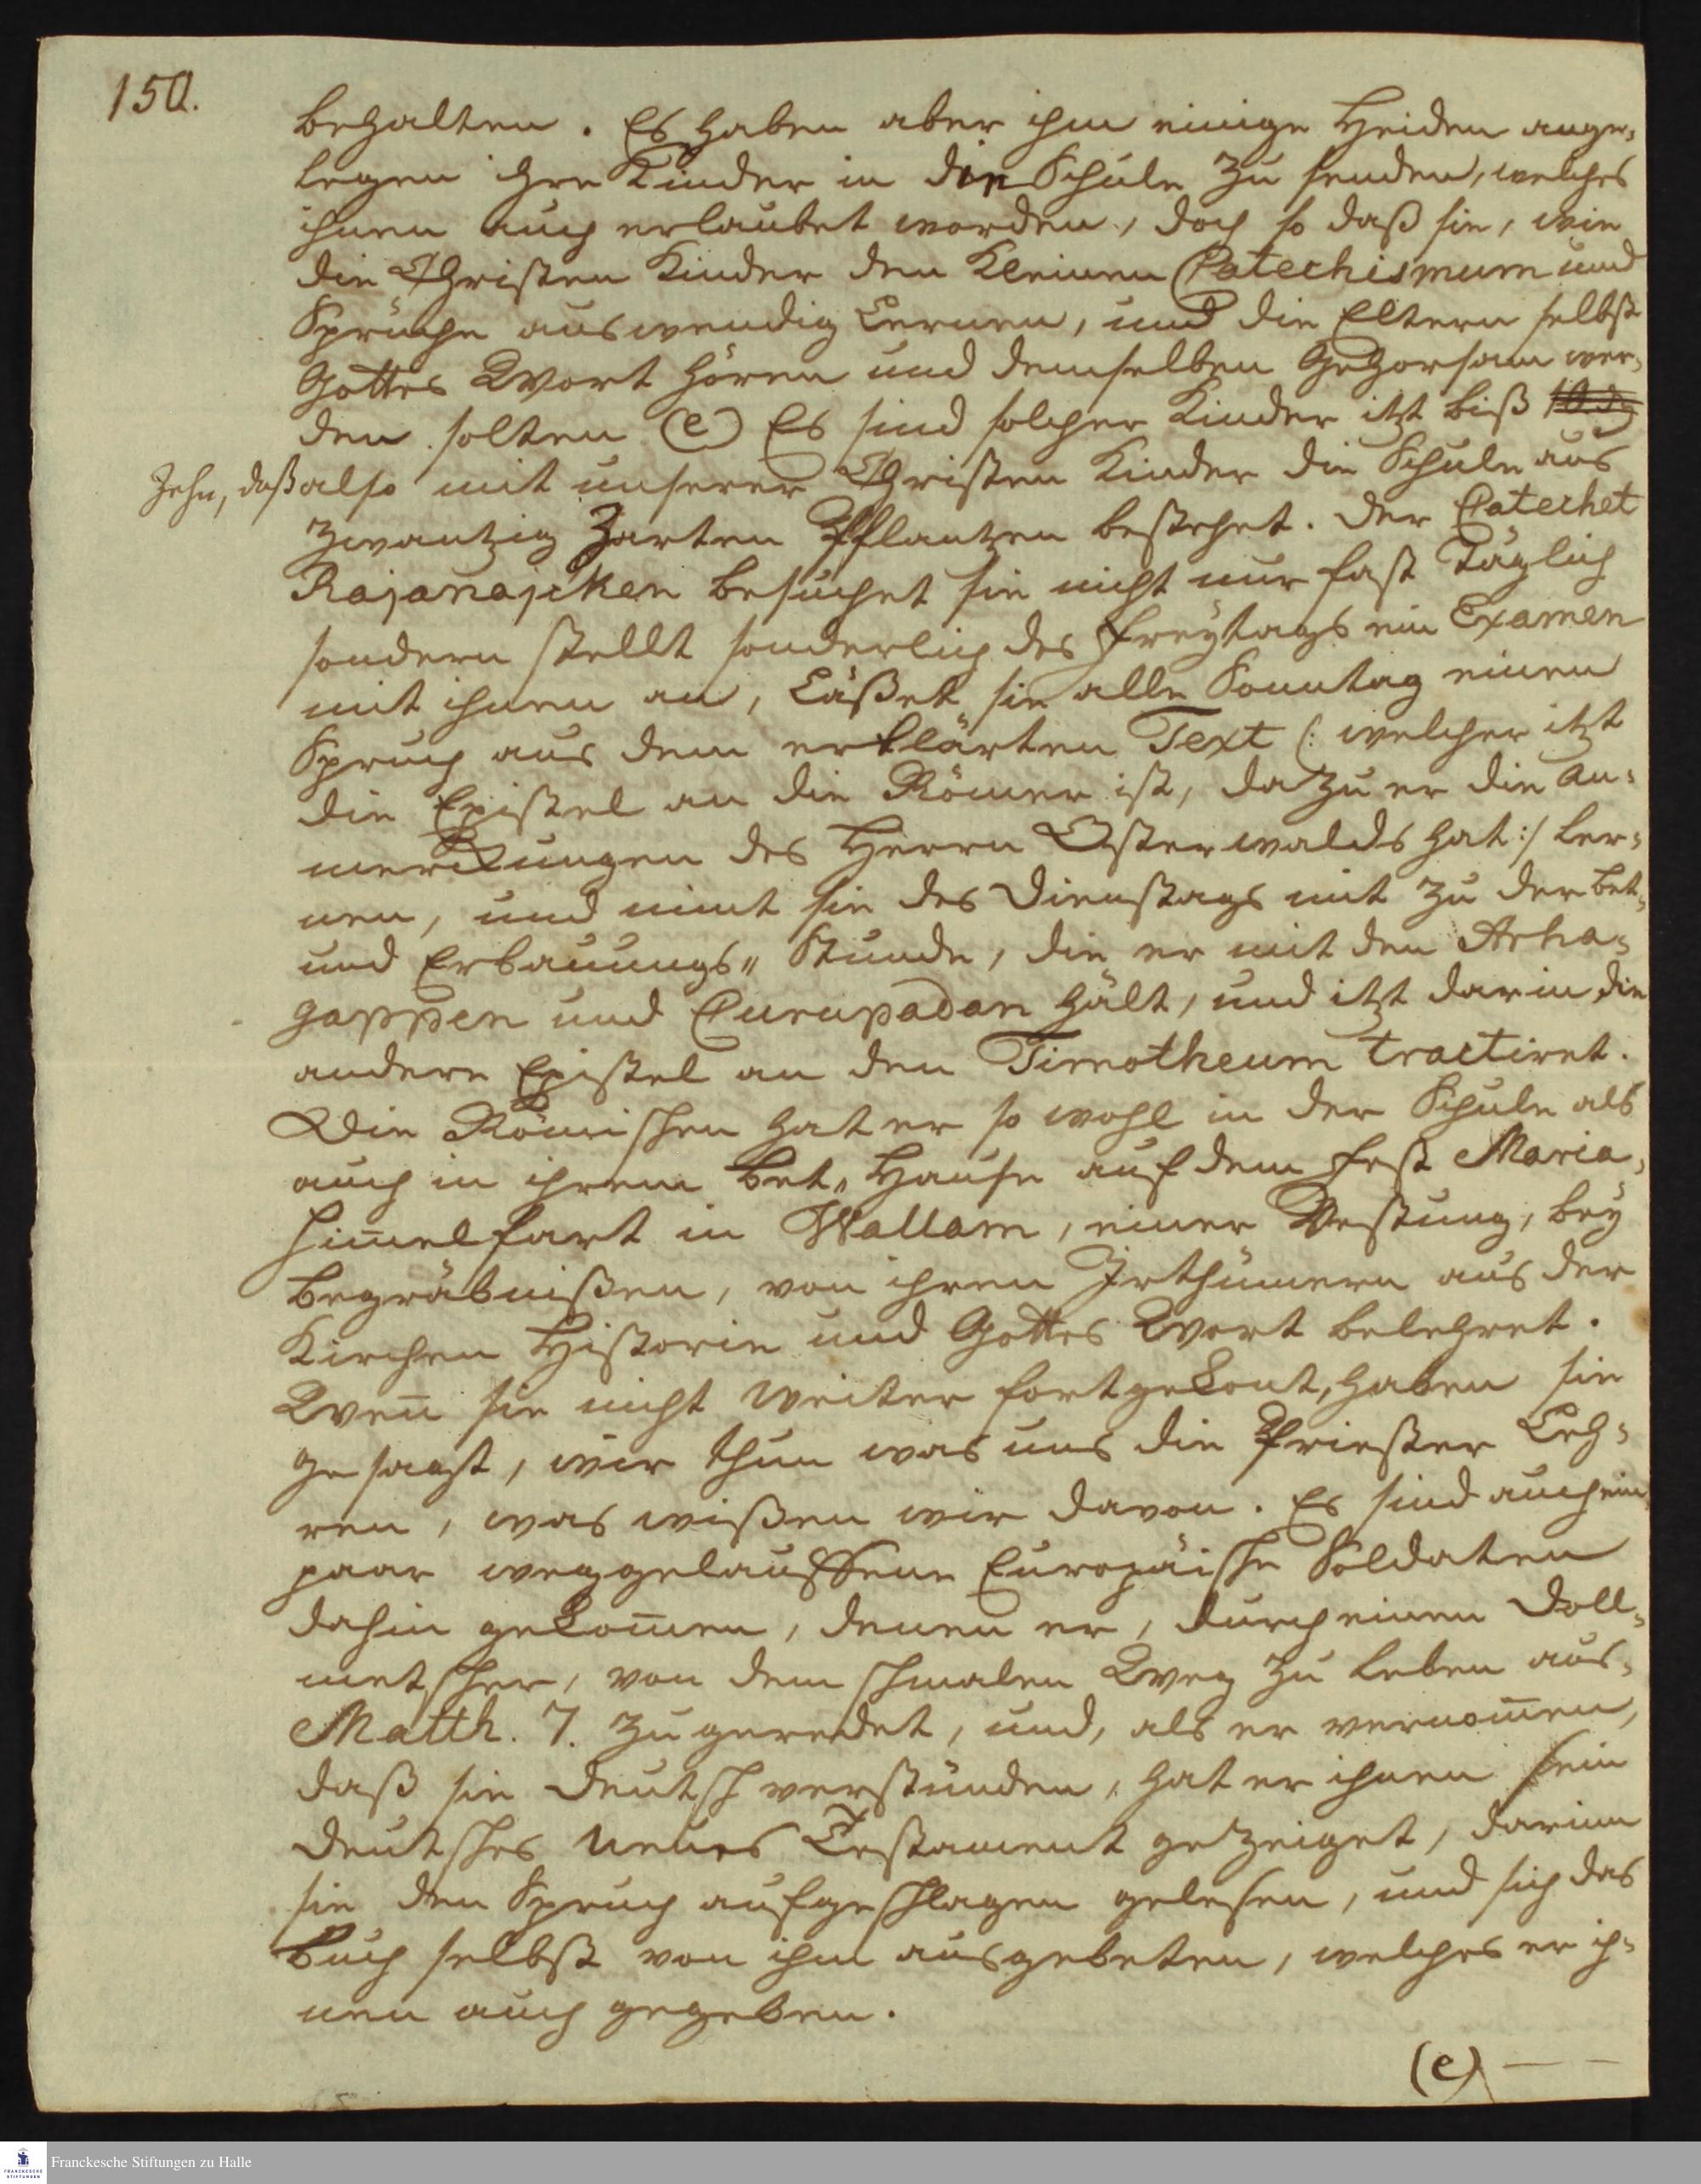 150.
behalten. Es haben aber ihm einige Heiden ange-
legen ihre Kinder in die Schule zu senden, welches
ihnen auch erlaubet worden, doch so daß sie, wie
die Christen Kinder den Kleinen Catechismum und
Sprüche auswendig Lernen, und die Eltern selbst
Gottes Wort hören und demselben Gehorsam wer-
den solten (e) Es sind solcher Kinder itzt biß
Zehn, daß also mit unserer Christen Kinder die Schule aus
zwantzig Zarten Pflantzen bestehet. Der Catechet
Rajanajcken besuchet sie nicht nur fast Täglich
sondern stellt sonderlich des Freytags ein Examen
mit ihnen an, Läßet sie alle Sonntag einen
Spruch aus dem erklärten Text (: welcher itzt
die Epistel an die Römer ist, dazu er die An-
merckungen des Herrn Osterwalds hat :/ ler-
nen, und nimt sie des Dienstags mit zu der bet-
und Erbauungs" Stunde, die er mit den Arha-
gappen und Curupadan hält, und itzt darin die
andere Epistel an den Timotheum tractiret.
Die Römischen hat er so wohl in der Schule als
auch in ihrem Bet" Hause auf dem Fest Maria-
Himelfart in Wallam, einer Vestung, bey
Begräbnißen, von ihren Irthümern aus der
Kirchen Historie und Gottes Wort belehret.
Weñ sie nicht weiter fortgekont, haben sie
gesagt, wir thun was uns die Priester Leh-
ren, was wißen wir davon. Es sind auch ein
paar weggelauffene Europäische Soldaten
dahin gekom̄en, denen er, durch einen Doll-
metscher, von dem schmalen Weg zu leben aus
Matth. 7. zugeredet, und, als er vernom̄en,
daß sie deutsch verstünden, hat er ihnen sein
deutsches neues Testament gezeiget, darinn
sie den Spruch aufgeschlagen gelesen, und sich das
Buch selbst von ihm ausgebeten, welches er ih-
nen auch gegeben.
(e) — —
Franckesche Stiftungen zu Halle
FRANCKESCHE STIFTUNGEN